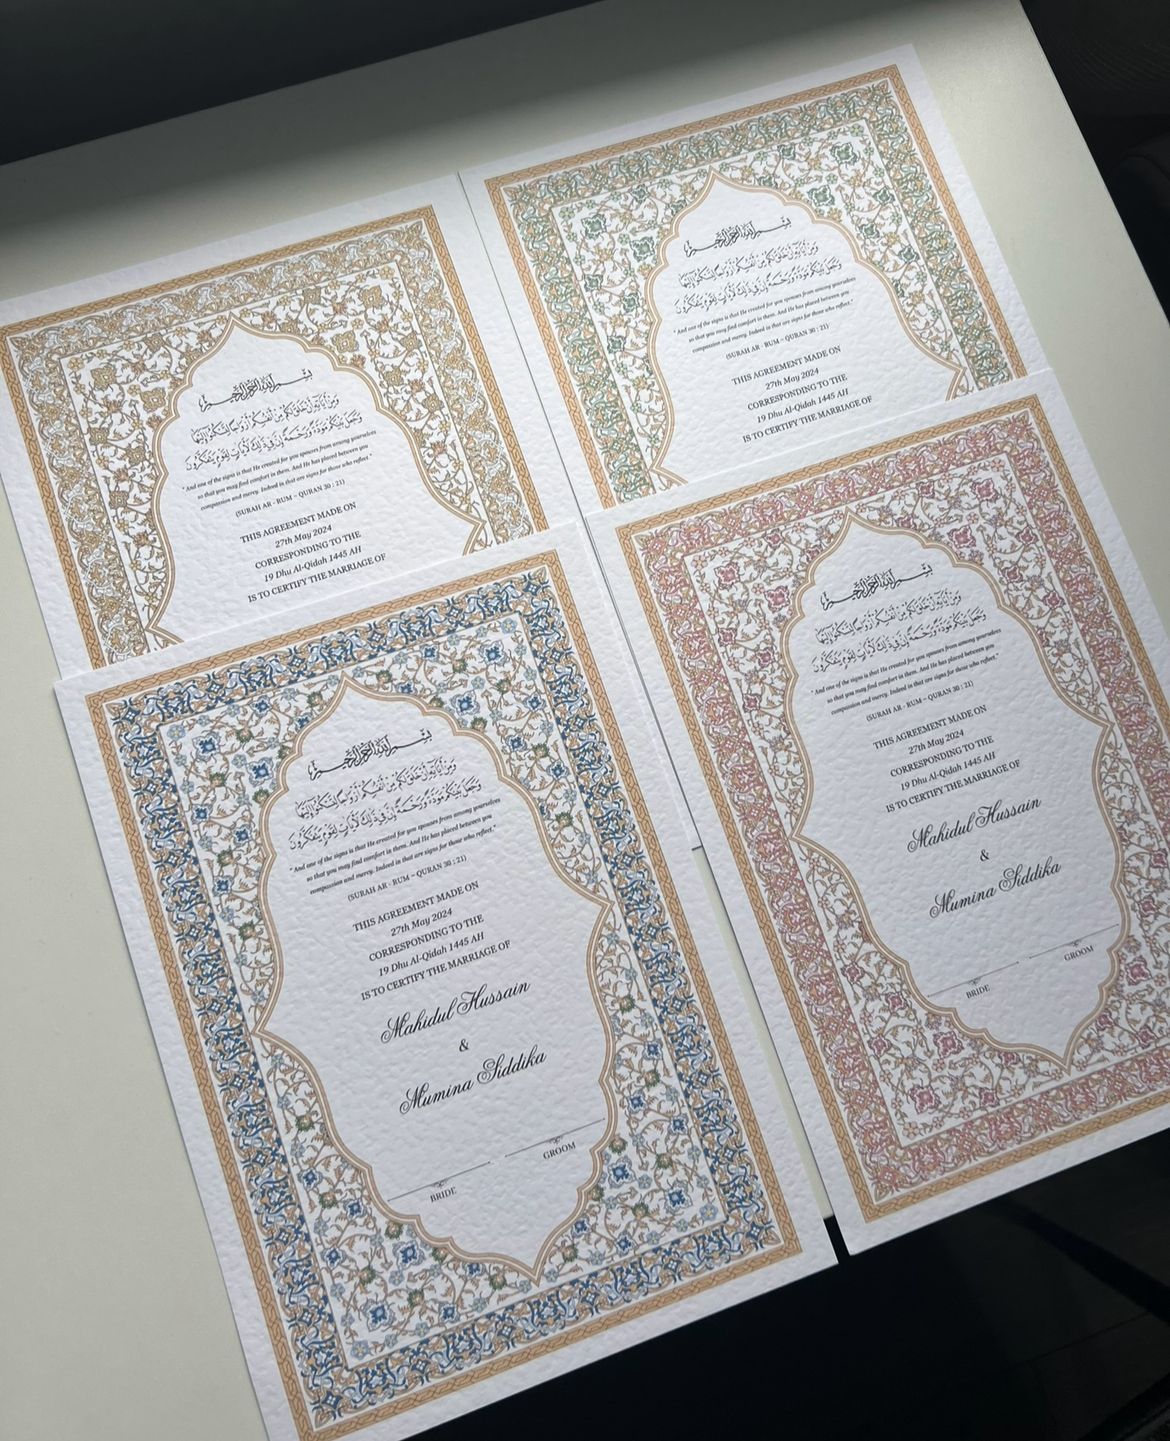 بسم الله الرحمن الرحيم
وَمِنْ آيَاتِهِ أَنْ خَلَقَ لَكُم مِّنْ أَنفُسِكُمْ أَزْوَاجًا لِّتَسْكُنُوا إِلَيْهَا
وَجَعَلَ بَيْنَكُم مَّوَدَّةً وَرَحْمَةً إِنَّ فِي ذَٰلِكَ لَآيَاتٍ لِّقَوْمٍ يَتَفَكَّرُونَ
" And one of the signs is that He created for you spouses from among yourselves
so that you may find comfort in them. And He has placed between you
compassion and mercy. Indeed in that are signs for those who reflect."
(SURAH AR - RUM – QURAN 30 : 21)
THIS AGREEMENT MADE ON
27th May 2024
CORRESPONDING TO THE
19 Dhu Al-Qidah 1445 AH
IS TO CERTIFY THE MARRIAGE OF
بسم الله الرحمن الرحيم
وَمِنْ آيَاتِهِ أَنْ خَلَقَ لَكُم مِّنْ أَنفُسِكُمْ أَزْوَاجًا لِّتَسْكُنُوا إِلَيْهَا
وَجَعَلَ بَيْنَكُم مَّوَدَّةً وَرَحْمَةً إِنَّ فِي ذَٰلِكَ لَآيَاتٍ لِّقَوْمٍ يَتَفَكَّرُونَ
" And one of the signs is that He created for you spouses from among yourselves
so that you may find comfort in them. And He has placed between you
compassion and mercy. Indeed in that are signs for those who reflect."
(SURAH AR - RUM – QURAN 30 : 21)
THIS AGREEMENT MADE ON
27th May 2024
CORRESPONDING TO THE
19 Dhu Al-Qidah 1445 AH
IS TO CERTIFY THE MARRIAGE OF
بسم الله الرحمن الرحيم
وَمِنْ آيَاتِهِ أَنْ خَلَقَ لَكُم مِّنْ أَنفُسِكُمْ أَزْوَاجًا لِّتَسْكُنُوا إِلَيْهَا
وَجَعَلَ بَيْنَكُم مَّوَدَّةً وَرَحْمَةً إِنَّ فِي ذَٰلِكَ لَآيَاتٍ لِّقَوْمٍ يَتَفَكَّرُونَ
" And one of the signs is that He created for you spouses from among yourselves
so that you may find comfort in them. And He has placed between you
compassion and mercy. Indeed in that are signs for those who reflect."
(SURAH AR - RUM – QURAN 30 : 21)
THIS AGREEMENT MADE ON
27th May 2024
CORRESPONDING TO THE
19 Dhu Al-Qidah 1445 AH
IS TO CERTIFY THE MARRIAGE OF
Mahidul Hussain
&
Mumina Siddika
BRIDE GROOM
بسم الله الرحمن الرحيم
وَمِنْ آيَاتِهِ أَنْ خَلَقَ لَكُم مِّنْ أَنفُسِكُمْ أَزْوَاجًا لِّتَسْكُنُوا إِلَيْهَا
وَجَعَلَ بَيْنَكُم مَّوَدَّةً وَرَحْمَةً إِنَّ فِي ذَٰلِكَ لَآيَاتٍ لِّقَوْمٍ يَتَفَكَّرُونَ
" And one of the signs is that He created for you spouses from among yourselves
so that you may find comfort in them. And He has placed between you
compassion and mercy. Indeed in that are signs for those who reflect."
(SURAH AR - RUM – QURAN 30 : 21)
THIS AGREEMENT MADE ON
27th May 2024
CORRESPONDING TO THE
19 Dhu Al-Qidah 1445 AH
IS TO CERTIFY THE MARRIAGE OF
Mahidul Hussain
&
Mumina Siddika
BRIDE GROOM